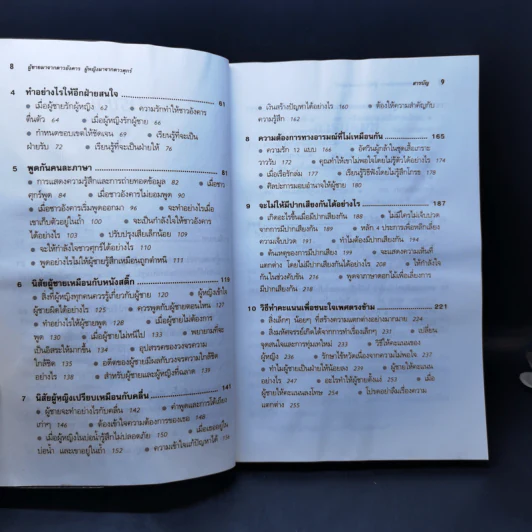 8 ผู้ชายมาจากดาวอังคาร ผู้หญิงมาจากดาวศุกร์
4 ทำอย่างไรให้อีกฝ่ายสนใจ 61
● เมื่อผู้ชายรักผู้หญิง 62 ● ความรักทำให้ชาวอังคาร
ตื่นตัว 64 ● เมื่อผู้หญิงรักผู้ชาย 66
● กำหนดขอบเขตให้ชัดเจน 69 ● เรียนรู้ที่จะเป็น
ฝ่ายรับ 72 ● เรียนรู้ที่จะเป็นฝ่ายให้ 76
5 พูดกันคนละภาษา 81
● การแสดงความรู้สึกและการถ่ายทอดข้อมูล 82 ● เมื่อชาว
ศุกร์พูด 84 ● เมื่อชาวอังคารไม่ยอมพูด 90
● เมื่อชาวอังคารเริ่มพูดออกมา 96 ● จะทำอย่างไรเมื่อ
เขาเก็บตัวอยู่ในถ้ำ 100 ● จะเป็นกำลังใจให้ชาวอังคาร
ได้อย่างไร 103 ● ปรับปรุงเสียเล็กน้อย 109
● จะให้กำลังใจชาวศุกร์ได้อย่างไร 110
● พูดอย่างไรไม่ให้ผู้ชายรู้สึกเหมือนถูกตำหนิ 111
6 นิสัยผู้ชายเหมือนกับหนังสติ๊ก 119
● สิ่งที่ผู้หญิงทุกคนควรรู้เกี่ยวกับผู้ชาย 120 ● ผู้หญิงเข้าใจ
ผู้ชายผิดได้อย่างไร 122 ● ควรพูดกับผู้ชายตอนไหน 127
● ทำอย่างไรให้ผู้ชายพูด 128 ● เมื่อผู้ชายไม่ต้องการ
พูด 130 ● เมื่อผู้ชายไม่หนีไป 133 ● พยายามที่จะ
เป็นอิสระให้มากขึ้น 134 ● อุปสรรคของวงจรความ
ใกล้ชิด 135 ● อดีตของผู้ชายมีผลกับวงจรความใกล้ชิด
อย่างไร 138 ● สำหรับผู้ชายและผู้หญิงที่ฉลาด 139
7 นิสัยผู้หญิงเปรียบเหมือนกับคลื่น 141
● ผู้ชายจะทำอย่างไรกับคลื่น 142 ● คำพูดและการโต้เถียง
เก่าๆ 146 ● ต้องเข้าใจความต้องการของเธอ 148
● เมื่อผู้หญิงในบ่อน้ำรู้สึกไม่ปลอดภัย 150 ● เมื่อเธออยู่ใน
บ่อน้ำ และเขาอยู่ในถ้ำ 152 ● ความเข้าใจแก้ปัญหาได้ 154
สารบัญ 9
● เงินสร้างปัญหาได้อย่างไร 160 ● ต้องให้ความสำคัญกับ
ความรู้สึก 162
8 ความต้องการทางอารมณ์ที่ไม่เหมือนกัน 165
● ความรัก 12 แบบ 166 ● อัศวินผู้กล้าในชุดเสื้อเกราะ
วาววับ 172 ● คุณทำให้เขาไม่พอใจโดยไม่รู้ตัวได้อย่างไร 174
● เมื่อเรียกร้อง 177 ● เรียนรู้วิธีฟังโดยไม่รู้สึกโกรธ 178
● ศิลปะการมอบอำนาจให้ผู้ชาย 180
9 จะไม่ให้มีปากเสียงกันได้อย่างไร 187
● เกิดอะไรขึ้นเมื่อมีปากเสียงกัน 188 ● ไม่มีใครไม่เจ็บปวด
จากการมีปากเสียงกัน 189 ● หลัก 4 ประการเพื่อหลีกเลี่ยง
ความเจ็บปวด 191 ● ทำไมต้องมีปากเสียงกัน 194
● ต้นเหตุของการมีปากเสียง 195 ● จะแสดงความเห็นที่
แตกต่าง โดยไม่มีปากเสียงกันได้อย่างไร 208 ● ให้กำลังใจ
กันในช่วงคับขัน 215 ● พูดจาภาษาดอกไม้เพื่อเลี่ยงการ
มีปากเสียงกัน 218
10 วิธีทำคะแนนเพื่อชนะใจเพศตรงข้าม 221
● สิ่งเล็กๆ น้อยๆ ที่สร้างความแตกต่างอย่างมากมาย 224
● สิ่งมหัศจรรย์เกิดได้จากการทำเรื่องเล็กๆ 231 ● เปลี่ยน
จุดสนใจและการทุ่มเทใหม่ 233 ● วิธีให้คะแนนของ
ผู้หญิง 239 ● รักษาไข้หวัดเนื่องจากความไม่พอใจ 237
● ทำไมผู้ชายเป็นฝ่ายให้น้อยลง 243 ● ผู้ชายให้คะแนน
อย่างไร 247 ● อะไรทำให้ผู้ชายดื้อแพ่ง 251 ● เมื่อ
ผู้ชายให้คะแนนลงโทษ 254 ● โปรดอย่าลืมเรื่องความ
แตกต่าง 255